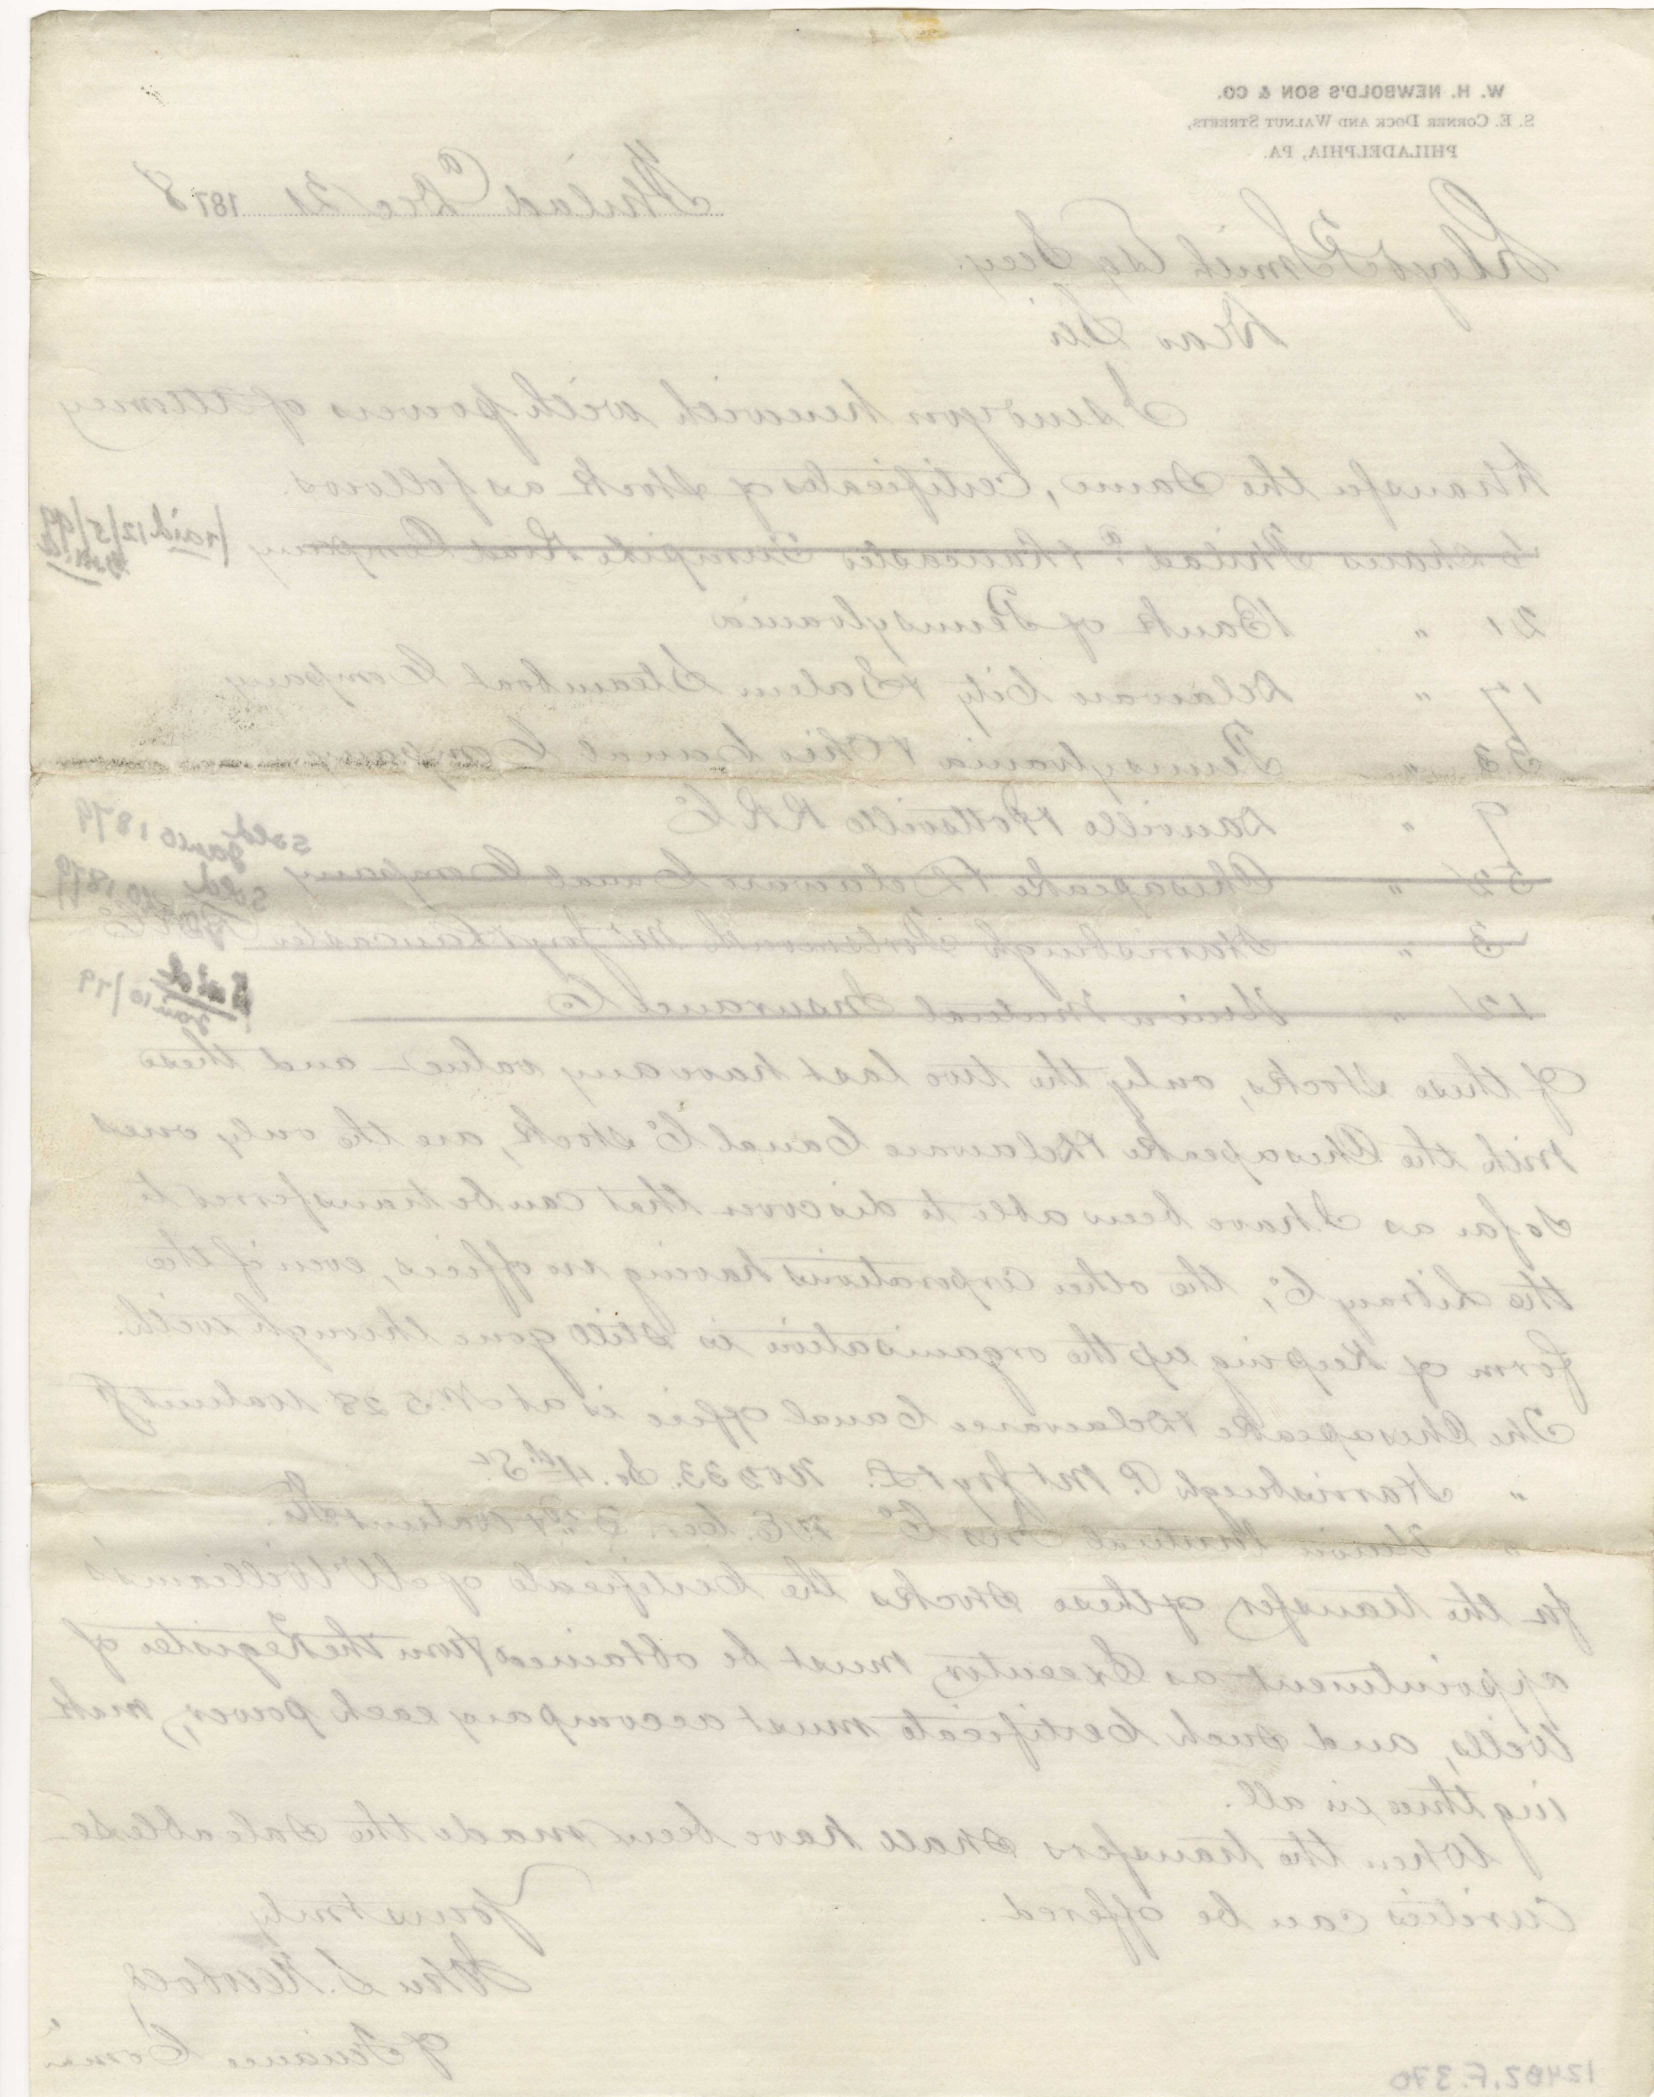 W. H. NEWBOLD'S SON & CO.
S. E. CORNER DOCK AND WALNUT STREETS,
PHILADELPHIA, PA.
Philada Dec 21 1878
Lloyd P Smith Esq Secy.
Dear Sir
I send you herewith with powers of attorney
to transfer the same, Certificates of Stock as follows.
Shares Philada & Lancaster Turnpike Road Company
paid 12/5/99
21 " Bank of Pennsylvania
17 " Delaware City & Salem Steamboat Company
53 " Pennsylvania & Ohio Canal Company
9 " Danville & Pottsville RR Co
52 " Chesapeake & Delaware Canal Company
sold Jan 10 1879
3 " Harrisburgh Portsmouth Mt Joy & Lancaster Co
sold 1879
12 " Union Mutual Insurance Co
Sold Jan 10/79
Of these Stocks, only the two last have any value - and these
with the Chesapeake & Delaware Canal Co stock, are the only ones
so far as I have been able to discover that can be transferred to
the Library Co, the other Corporations having no offices, even if the
form of keeping up the organisation is still gone through with.
The Chesapeake & Delaware Canal office is at No 528 Walnut St
" Harrisburgh P. Mt Joy & L. No 233. So. 4th St.
" Union Mutual Ins Co N.E. Cor. 3rd & Walnut Sts.
for the transfer of these Stocks the Certificate of Mr Williams's
appointment as Executor must be obtained from the Register of
Wills, and such Certificate must accompany each power, mak
ing three in all.
When the transfers shall have been made the saleable se-
curities can be offered.
Yours truly
John S. Newbold
of Finance Comte
12402.F.370